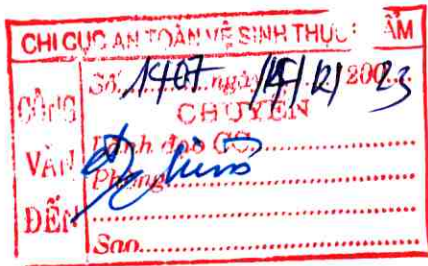 CHI CỤC AN TOÀN VỆ SINH THỰC ẨM
CÔNG VĂN ĐẾN
Số 1407 ngày 14/12/2023
CHUYỂN
Lãnh đạo CC
Phòng
Sao